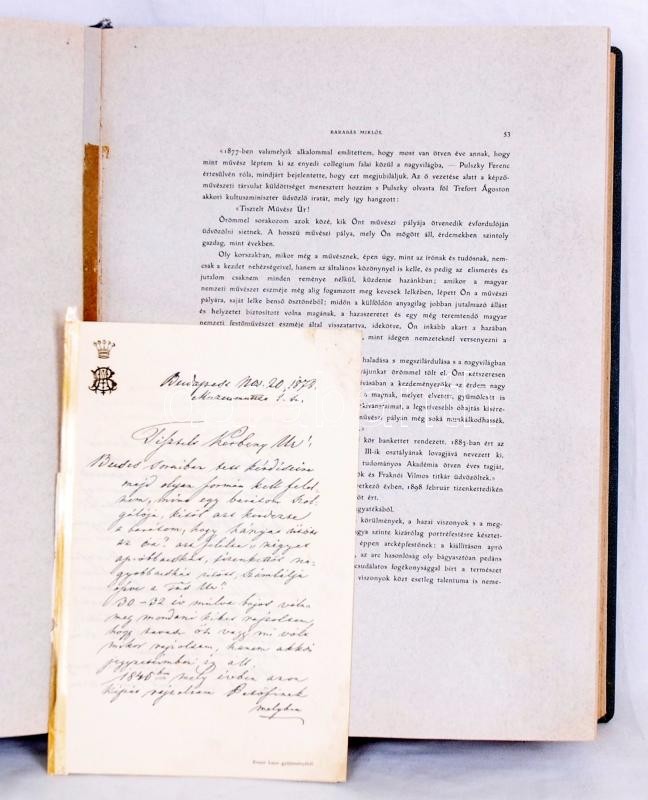 BARABÁS MIKLÓS.
53
«1877-ben valamelyik alkalommal említettem, hogy most van ötven éve annak, hogy
mint művész léptem ki az enyedi collegium falai közül a nagyvilágba, — Pulszky Ferenc
értesülvén róla, mindjárt bejelentette, hogy ezt megjubiláljuk. Az ő vezetése alatt a képző-
művészeti társulat küldöttséget menesztett hozzám s Pulszky olvasta föl Trefort Ágoston
akkori kultuszminiszter üdvözlő iratát, mely így hangzott:
«Tisztelt Művész Úr!
Örömmel sorakozom azok közé, kik Önt művészi pályája ötvenedik évfordulóján
üdvözölni sietnek. A hosszú művészi pálya, mely Ön mögött áll, érdemekben szintoly
gazdag, mint években.
Oly korszakban, mikor még a művésznek, épen úgy, mint az írónak és tudósnak, nem-
csak a kezdet nehézségeivel, hanem az általános közönynyel is kelle, és pedig az elismerés és
jutalom csaknem minden reménye nélkül, küzdenie hazánkban; amikor a magyar
nemzeti művészet eszméje még alig fogamzott meg kevesek lelkében, lépett Ön a művészi
pályára, saját lelke benső ösztönéből; midőn a külföldön anyagilag jobban jutalmazó állást
és helyzetet biztosított volna magának, a hazaszeretet és egy még teremtendő magyar
nemzeti festőművészet eszméje által visszatartva, idekötve, Ön inkább akart a hazában
mint idegen nemzeteknél versenyezni a
haladása s megszilárdulása s a nagyvilágban
vajunkat örömmel tölt el. Önt kétszeresen
ivásában a kezdeményezők az érdem nagy
a magnak, melyet elvetett, gyümölcsit is
kivánataimat, a legszívesebb óhajtás kisére-
művészi pályán még soká munkálkodhassék,
kör bankettet rendezett. 1883-ban ért az
III-ik osztályának lovagjává nevezett ki.
tudományos Akadémia ötven éves tagját,
ök és Fraknói Vilmos titkár üdvözöltek.»
vetkező évben, 1898 február tizenkettedikén
öt ért.
gyatékából.
körülmények, a hazai viszonyok s a meg-
gya szinte kizárólag portréfestésre késztet-
éppen arcképfestőnek: a kiállításon apró
, az arc hasonlóság oly bágyasztóan pedáns
csudálatos fogékonysággal bírt a természet
viszonyok közt esetleg talentuma is neme-
Budapest Nov. 20, 1878.
Tisztelt Kertbeny Úr!
majd olyan formán kell felel-
nem, mint egy barátom
a barátom, hogy hányat ütött
az óra? azt felelte, négyet
30–32 év múlva bajos volna
meg mondani kiket rajzoltam,
hogy havadi ős vagy mi volt
mikor rajzoltam, hanem akkor
1845ben mely évben azon
képet rajzoltam Petőfinek
melyben
Ernst Lajos gyűjteményéből